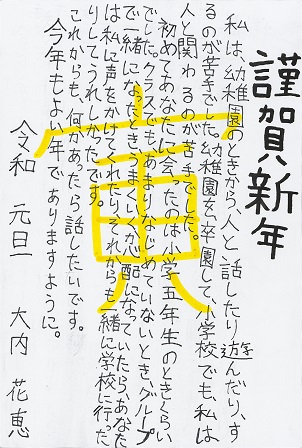 謹賀新年
私は、幼稚園のときから、人と話したり遊んだり、す
るのが苦手でした。幼稚園を卒園して、小学校でも、私は
人と関わるのが苦手でした。
初めてあなたに会ったのは小学五年生のときくらい
でした。クラスでもあまりなじめていないとき、グループ
で一緒になったときうまくいくか心配になっていたら、あなた
は私に声をかけてくれたり、それからも一緒に学校に行った
りしてうれしかたです。
これからも、何かあったら話したいです。
今年もよい年でありますように。
令和 元旦 大内花恵
寅